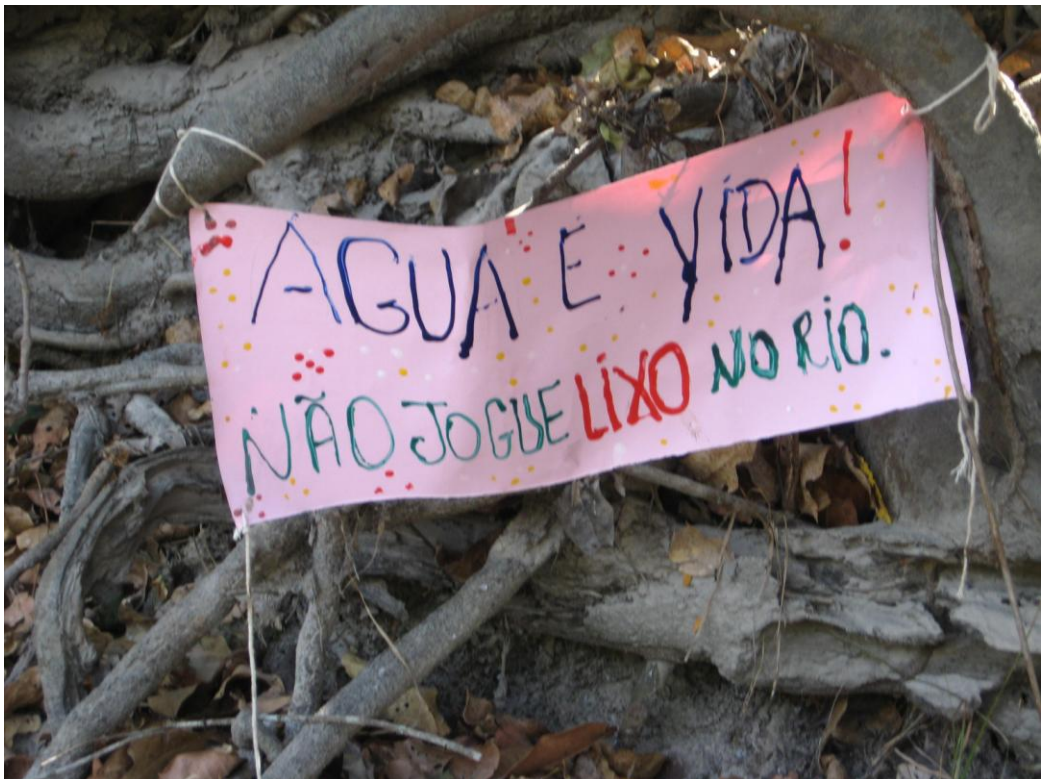 ÁGUA É VIDA!
NÃO JOGUE LIXO NO RIO.